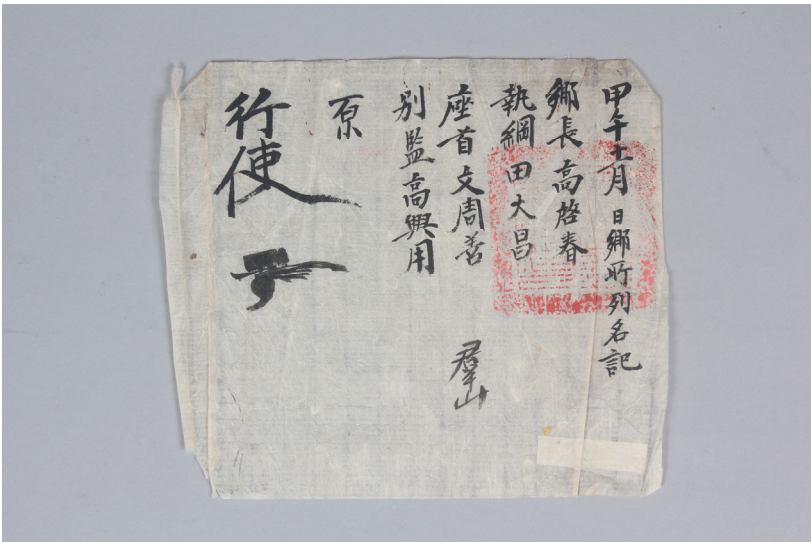 甲午十一月 日鄕所列名記
鄕長 高啓春
執綱 田大昌
座首 文周善
別監 高興用
羣山
原
行使